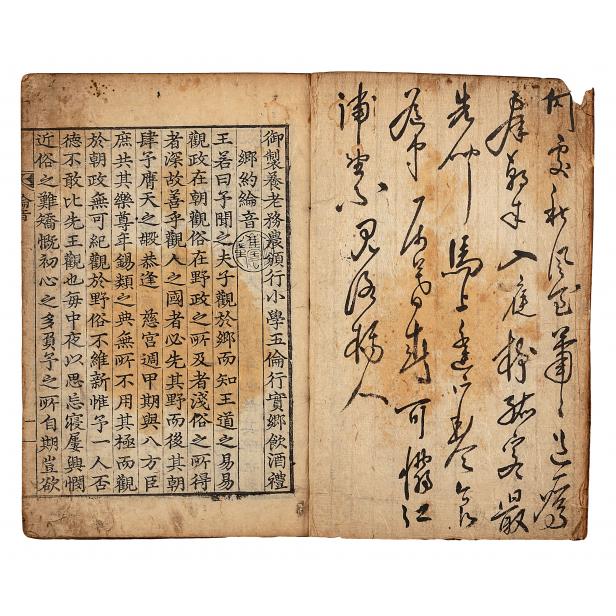 何處秋風至蕭々送鴈
群朝來入庭樹孤客最
先聞馬上逢寒食
途中属暮春可憐江
浦望不見洛橋人
御製養老務農頒行小學五倫行實鄉飲酒禮
鄉約綸音
王若曰予聞之夫子觀於鄉而知王道之易易
觀政在朝觀俗在野政之所及者淺俗之所得
者深故善乎觀人之國者必先其野而後其朝
肆予膺天之嘏恭逢 慈宮週甲期與八方臣
庶共其樂尊年錫類之典無所不用其極而觀
於朝政無可紀觀於野俗不維新惟予一人否
德不敢比先王觀也每中夜以思忘寢屢興憫
近俗之難矯慨初心之多負予之所自期豈欲
綸音
一